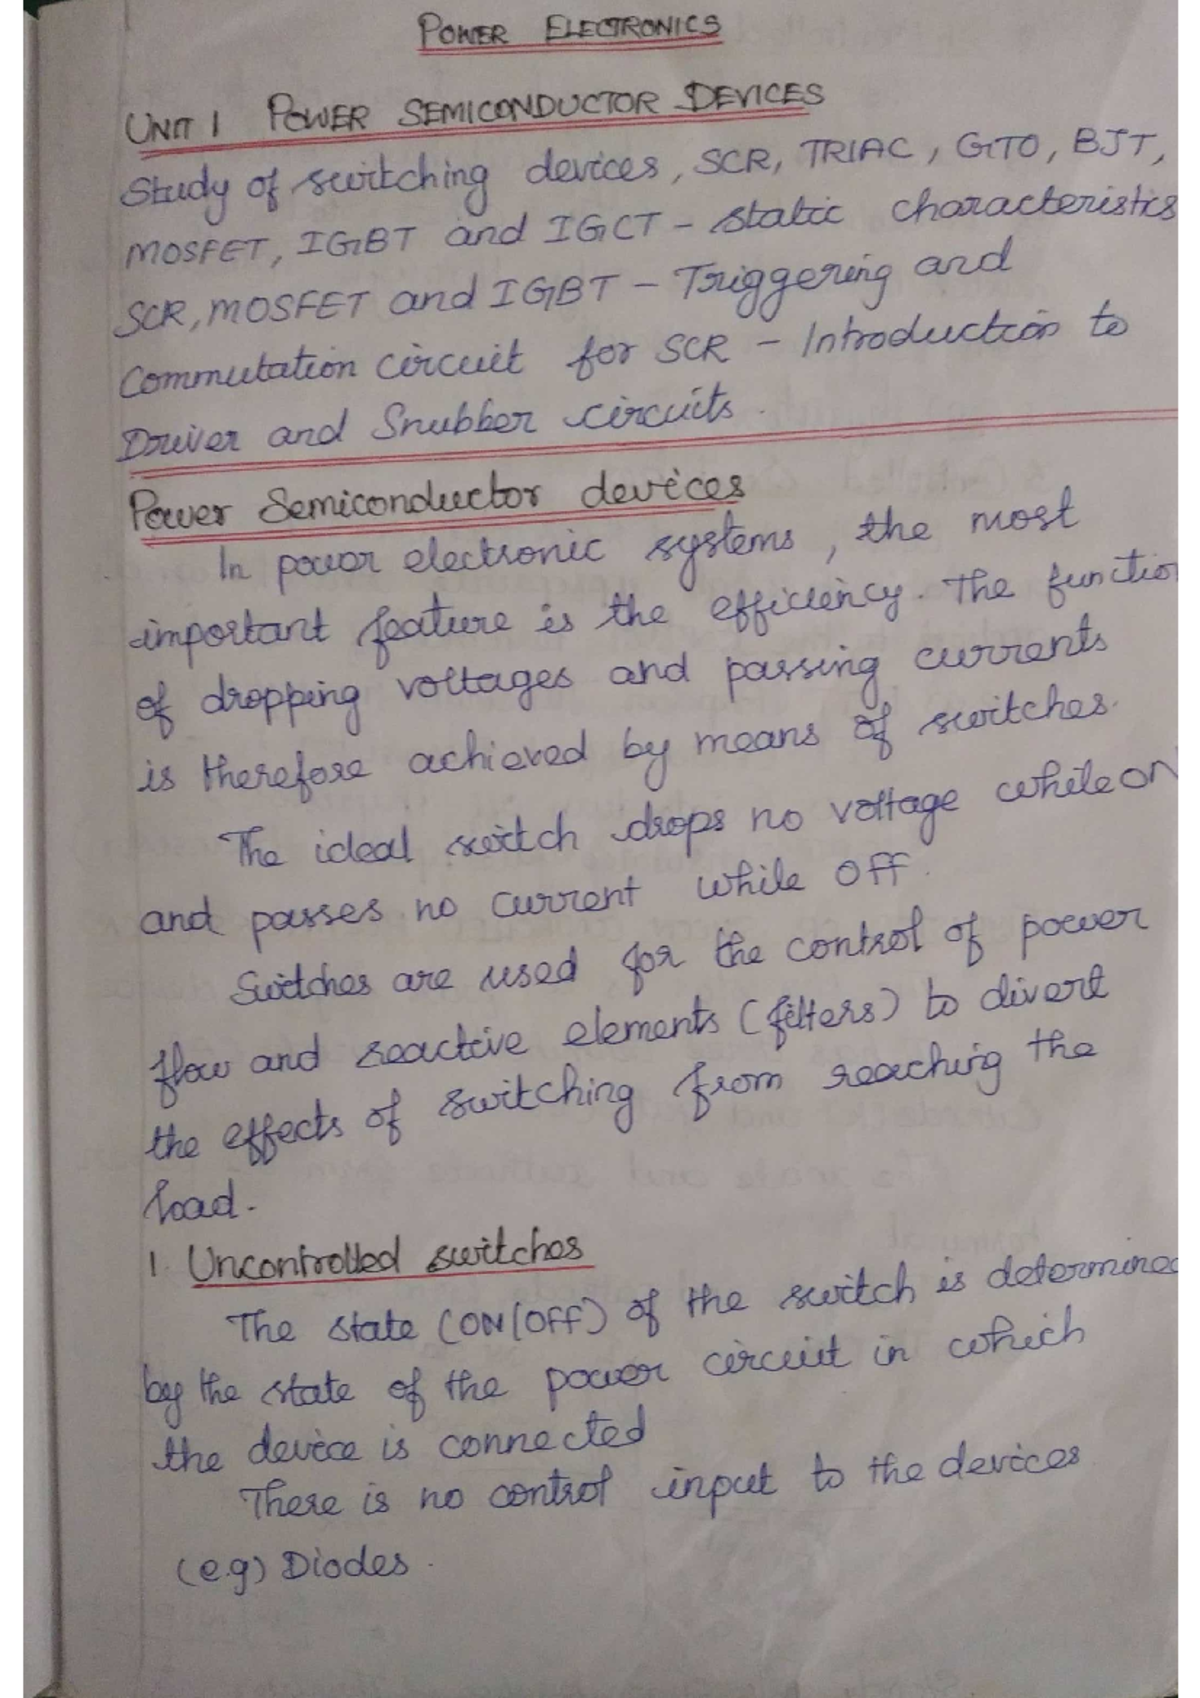 POWER ELECTRONICS
UNIT 1 POWER SEMICONDUCTOR DEVICES
Study of switching devices, SCR, TRIAC, GTO, BJT,
MOSFET, IGBT and IGCT - static characteristics
SCR, MOSFET and IGBT - Triggering and
Commutation circuit for SCR - Introduction to
Driver and Snubber circuits.
Power Semiconductor devices
In power electronic systems, the most
important feature is the efficiency. The function
of dropping voltages and passing currents
is therefore achieved by means of switches.
The ideal switch drops no voltage while ON
and passes no current while OFF.
Switches are used for the control of power
flow and reactive elements (filters) to divert
the effects of switching from reaching the
load.
1. Uncontrolled switches
The state (ON/OFF) of the switch is determined
by the state of the power circuit in which
the device is connected
There is no control input to the devices
(e.g) Diodes.